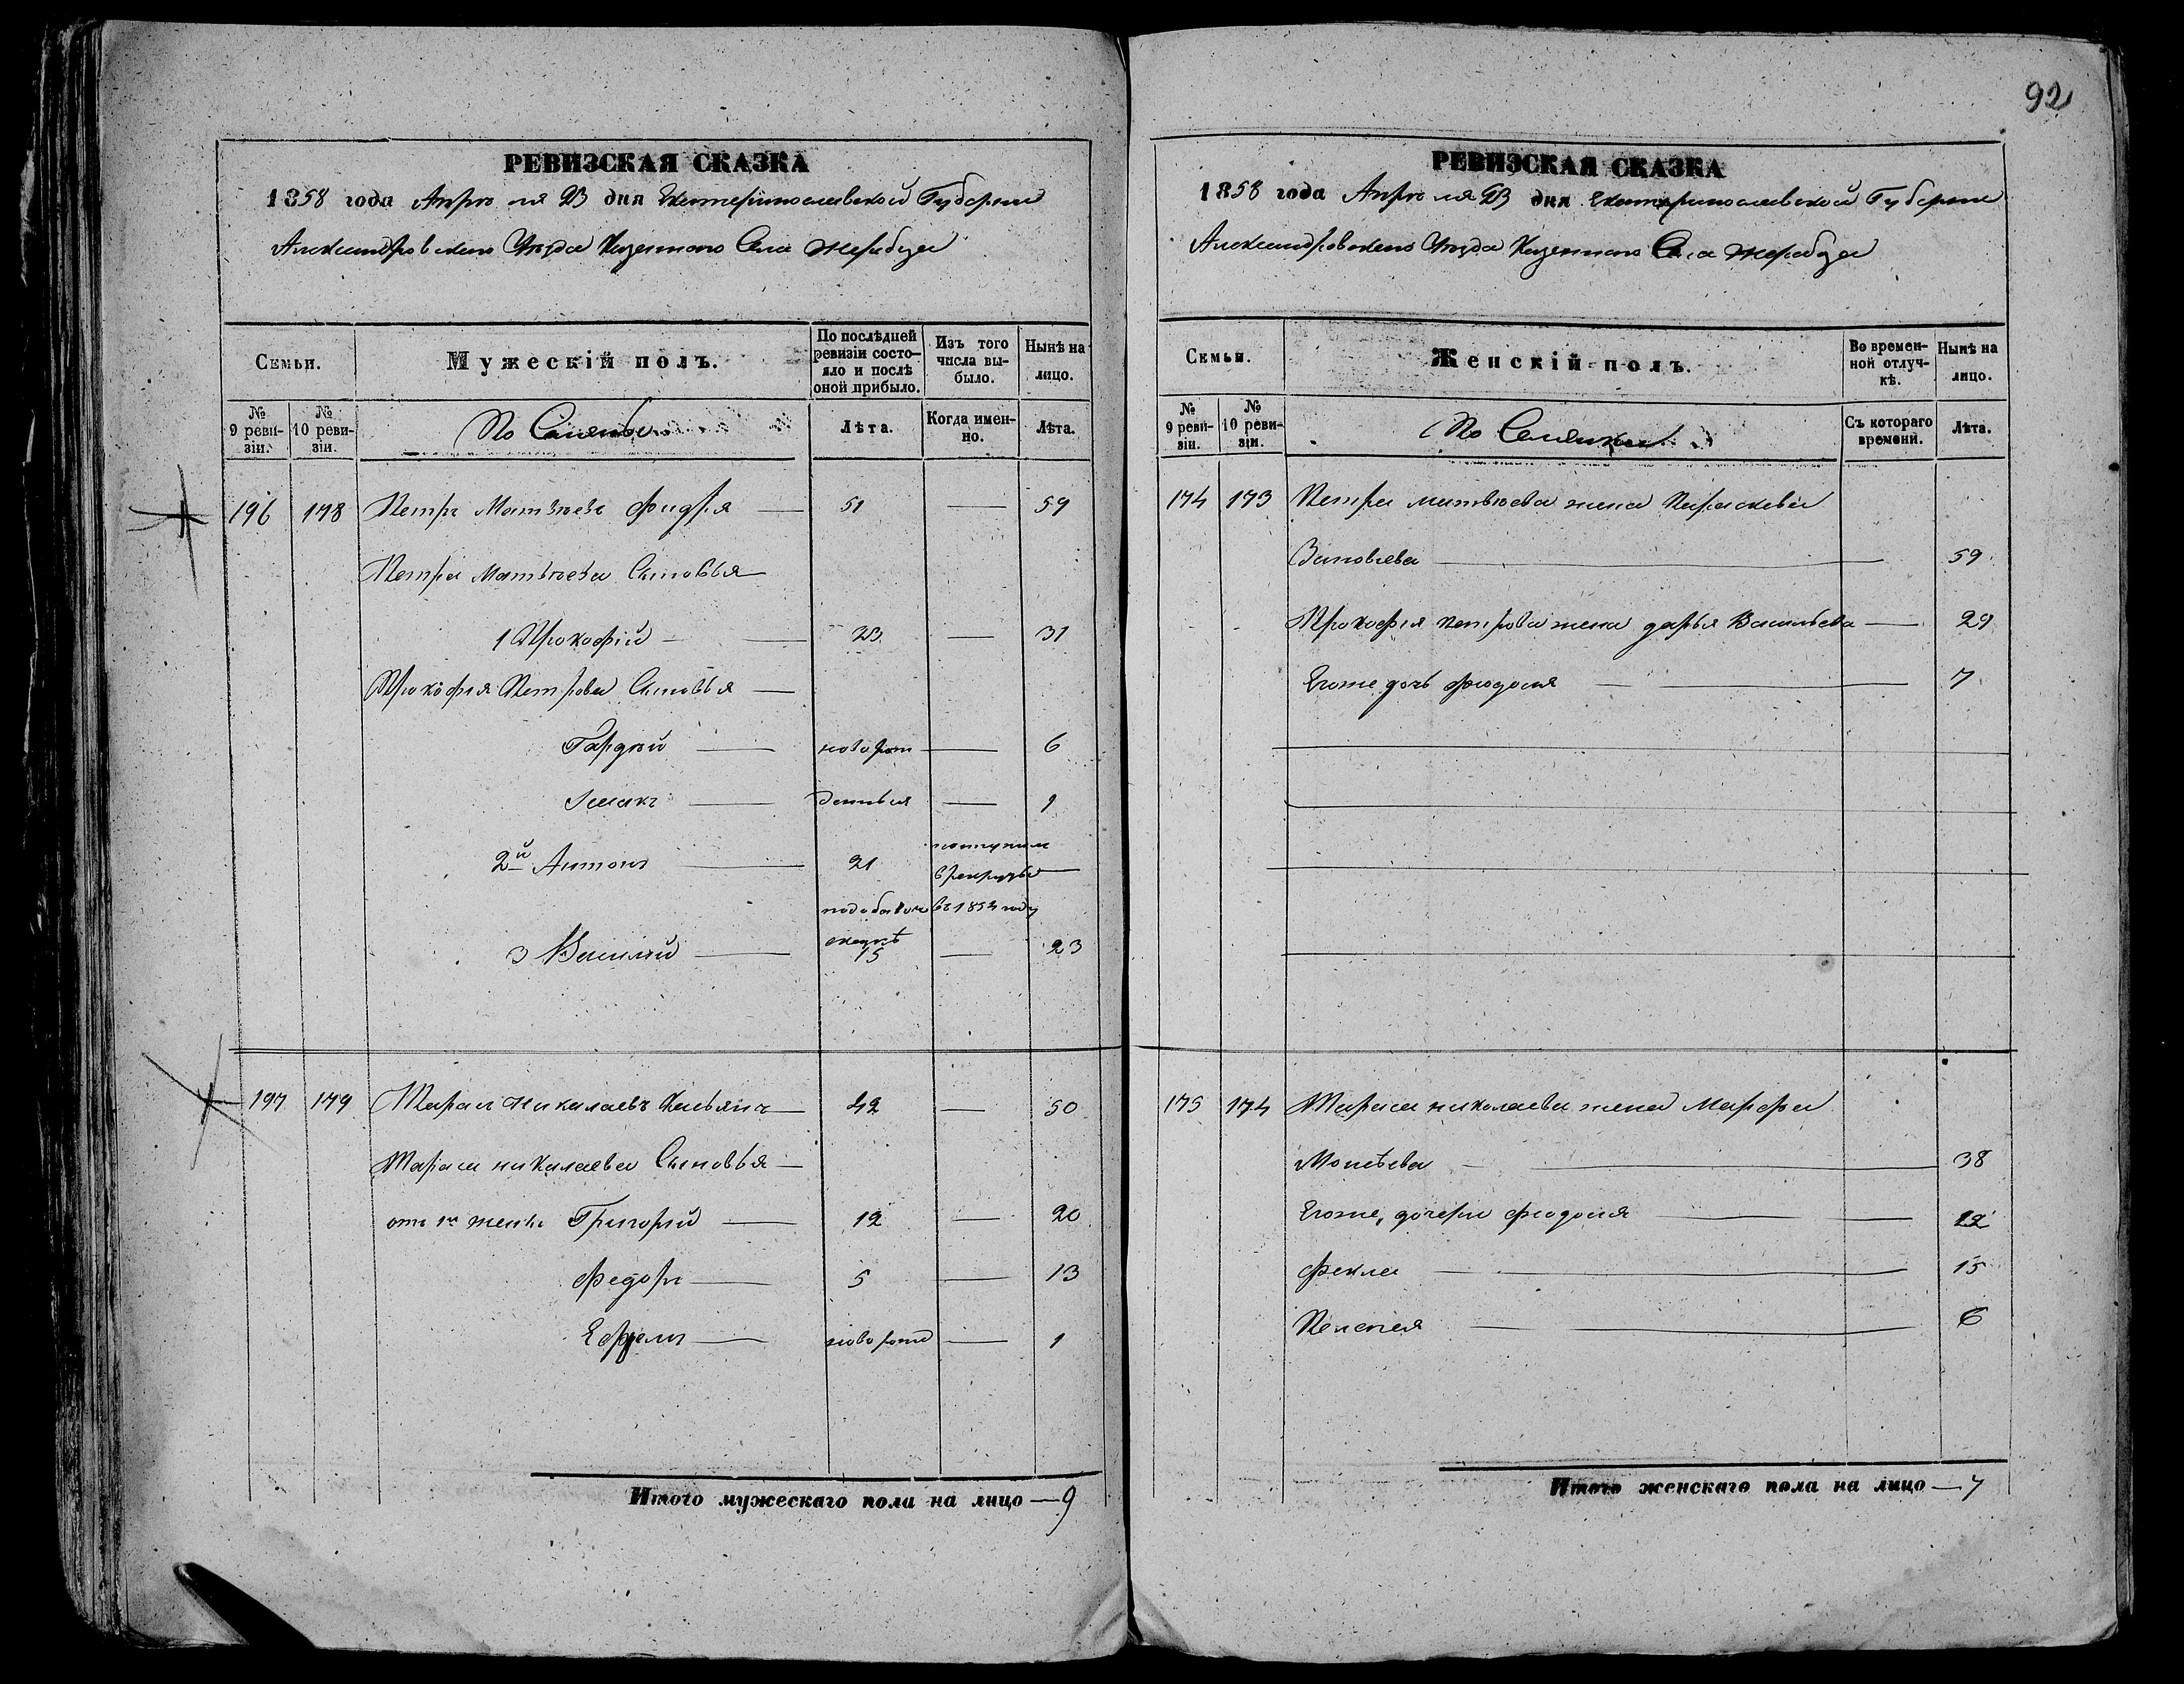 92
РЕВИЗСКАЯ СКАЗКА
1858 года Апреля 23 дня Екатеринославской Губернии
Александровского Уезда Казенного Села Жеребца
Семьи.
Мужескій полъ.
По послѣдней ревизіи состояло и послѣ оной прибыло.
Изъ того числа выбыло.
Нынѣ на лицо.
№ 9 ревизіи.
№ 10 ревизіи.
Лѣта.
Когда именно.
Лѣта.
196 178 Петръ Матвѣевъ 51 — 59
Петра Матвѣева Сыновья
1 Прокофій — 23 — 31
Прокофія Петрова Сыновья
Гордѣй — ново рож — 6
Исаакъ — — 1
2й Антонъ — 21 поступил
в рекруты
в 1854 году
3 Василій — 15 — 23
197 179 Тарасъ Николаевъ Касьянъ 42 — 50
Тараса Николаева Сыновья
отъ 1й жены Григорій — 12 — 20
Федоръ — 5 — 13
Ефремъ — ново рожд — 1
Итого мужескаго пола на лицо — 9
РЕВИЗСКАЯ СКАЗКА
1858 года Апреля 23 дня Екатеринославской Губернии
Александровского Уезда Казенного Села Жеребца
Семьи.
Женскій полъ.
Во временной отлучкѣ.
Нынѣ на лицо.
№ 9 ревизіи.
№ 10 ревизіи.
Съ котораго времени.
Лѣта.
174 173 Петра Матвѣева жена Параскева
Зиновьева — 59
Прокофія Петрова жена Дарья Васильева — 29
Егоже дочь Феодосія — 7
175 174 Тараса Николаева жена Марфа
Моисѣева — 38
Егоже, дочери Феодосия — 12
Фекла — 15
Пелагея — 6
Итого женскаго пола на лицо — 7